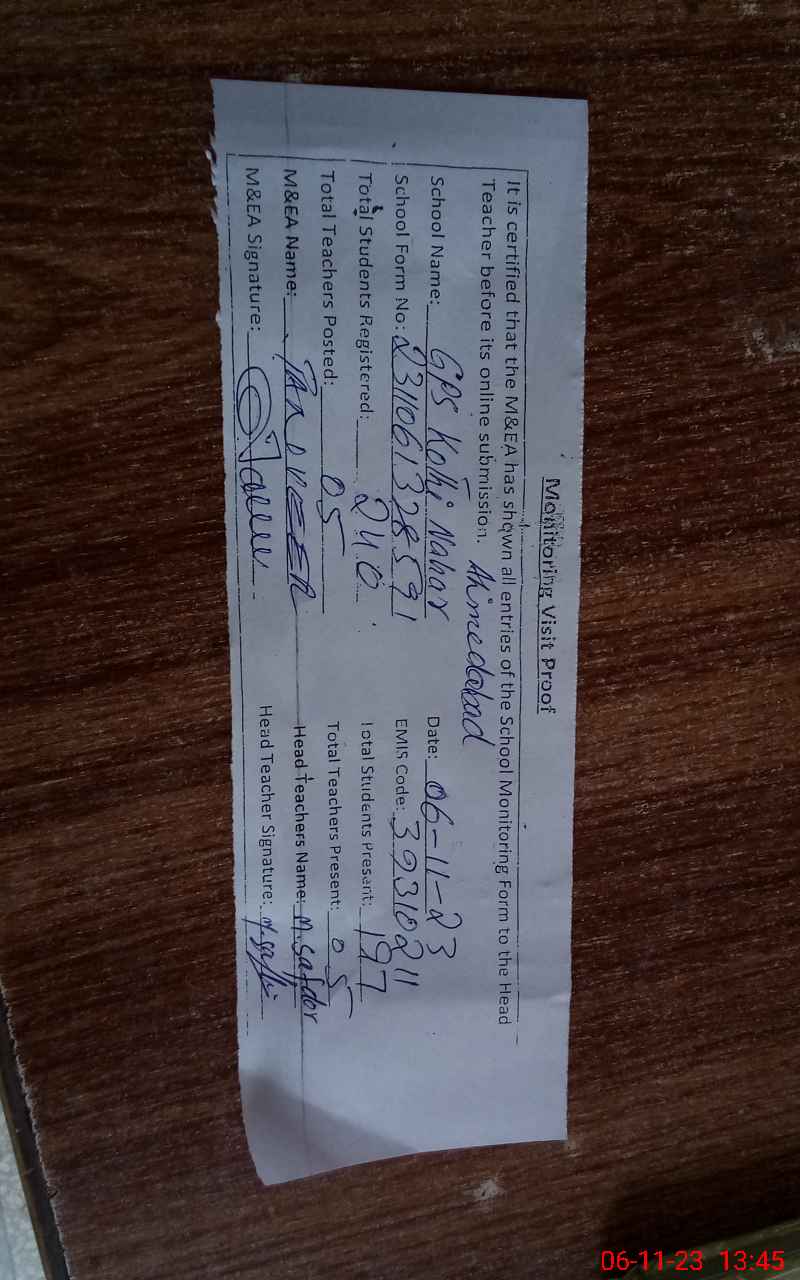 Monitoring Visit Proof
It is certified that the M&EA has shown all entries of the School Monitoring Form to the Head
Teacher before its online submission.
School Name: GPS Kothi Nahar Ahmedabad Date: 06-11-23
School Form No: 231106132859 1 EMIS Code: 39310211
Total Students Registered: 240 Total Students Present: 197
Total Teachers Posted: 05 Total Teachers Present: 05
M&EA Name: TANVEER Head Teachers Name: M.Safdar
M&EA Signature: Head Teacher Signature: M.Safdar
06-11-23 13:45